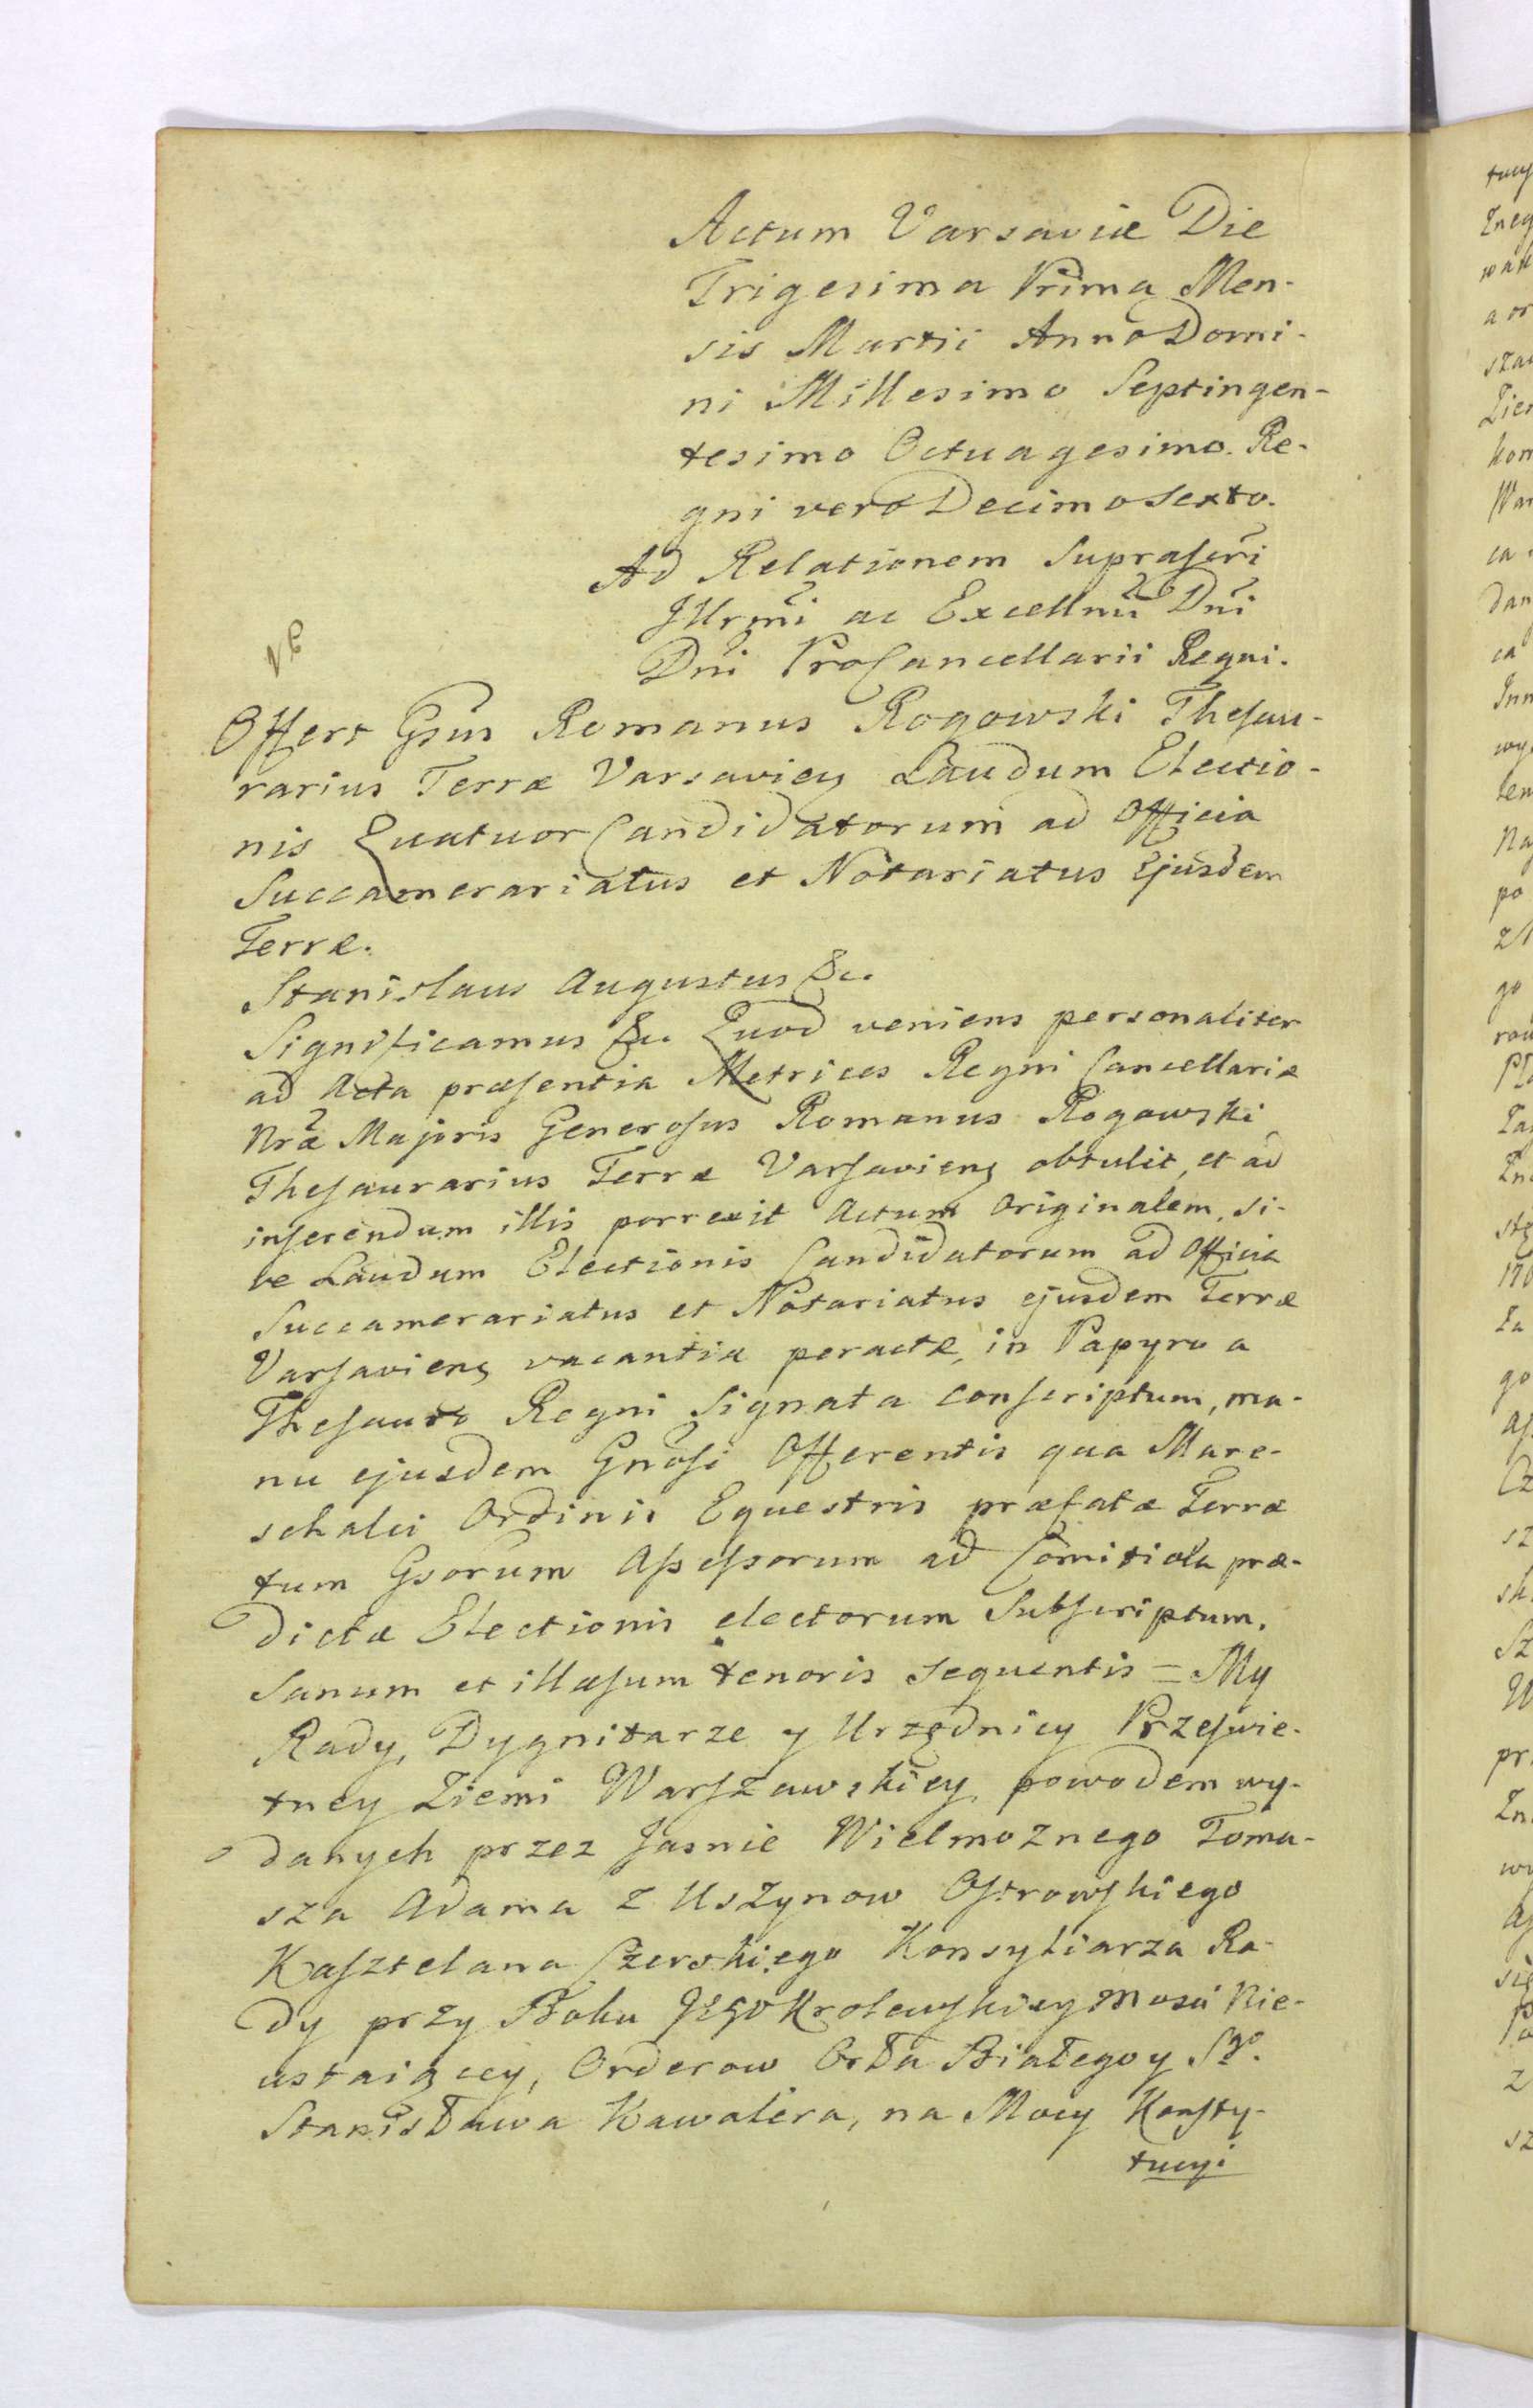 Actum Varsaviæ Die
Trigesima Prima Men-
sis Martii Anno Domi-
ni Millesimo Septingen-
tesimo Octuagesimo. Re-
gni vero Decimo Sexto.
Ad Relationem Suprascri
Illrmi ac Excellmi Dni
Dni ProCancellarii Regni.
NB
Offert Gsus Romanus Rogowski Thesau-
rarius Terræ Varsavien Laudum Electio-
nis Quatuor Candidatorum ad Officia
Succamerariatus et Notariatus Ejusdem
Terræ.
Stanislaus Augustus &c.
Significamus &c. Quod veniens personaliter
ad Acta præsentia Metrices Regni Cancellariæ
Nræ Majoris Generosus Romanus Rogowski
Thesaurarius Terræ Varsavien obtulit, et ad
inserendum illis porrexit Actum Originalem, si-
ve Laudum Electionis Candidatorum ad Officia
Succamerariatus et Notariatus ejusdem Terræ
Varsavien vacantia peractæ, in Papyro a
Thesauro Regni Signata conscriptum, ma-
nu ejusdem Gnosi Offerentis qua Mare-
schalci Ordinis Equestris præfatæ Terræ
tum Gsorum Assessorum ad Comitiola præ-
dictæ Electionis electorum Subscriptum,
Sanum et illæsum tenoris sequentis = My
Rady, Dygnitarze y Urzędnicy Przeswie-
tney Ziemi Warszawskiey, powodem wy-
danych przez Jasnie Wielmoznego Toma-
sza Adama z Uszynow Ostrowskiego
Kasztelana Czerskiego Konsyliarza Ra-
dy przy Boku JEGO Krolewskiey Mosci Nie-
ustaiącey, Orderow Orła Białego y Sgo.
Stanisława Kawalera, na Mocy Konsty-
tucyi